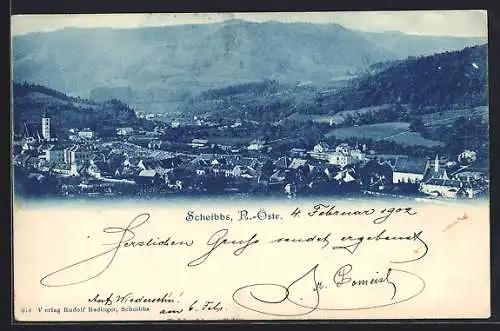 Scheibbs, N.-Östr. 4. Februar 1902
Herzlichen Gruss sendet ergebenst
Fr.
Auf Wiederseh'n!
am 6. Febr.
Verlag Rudolf Radinger, Scheibbs